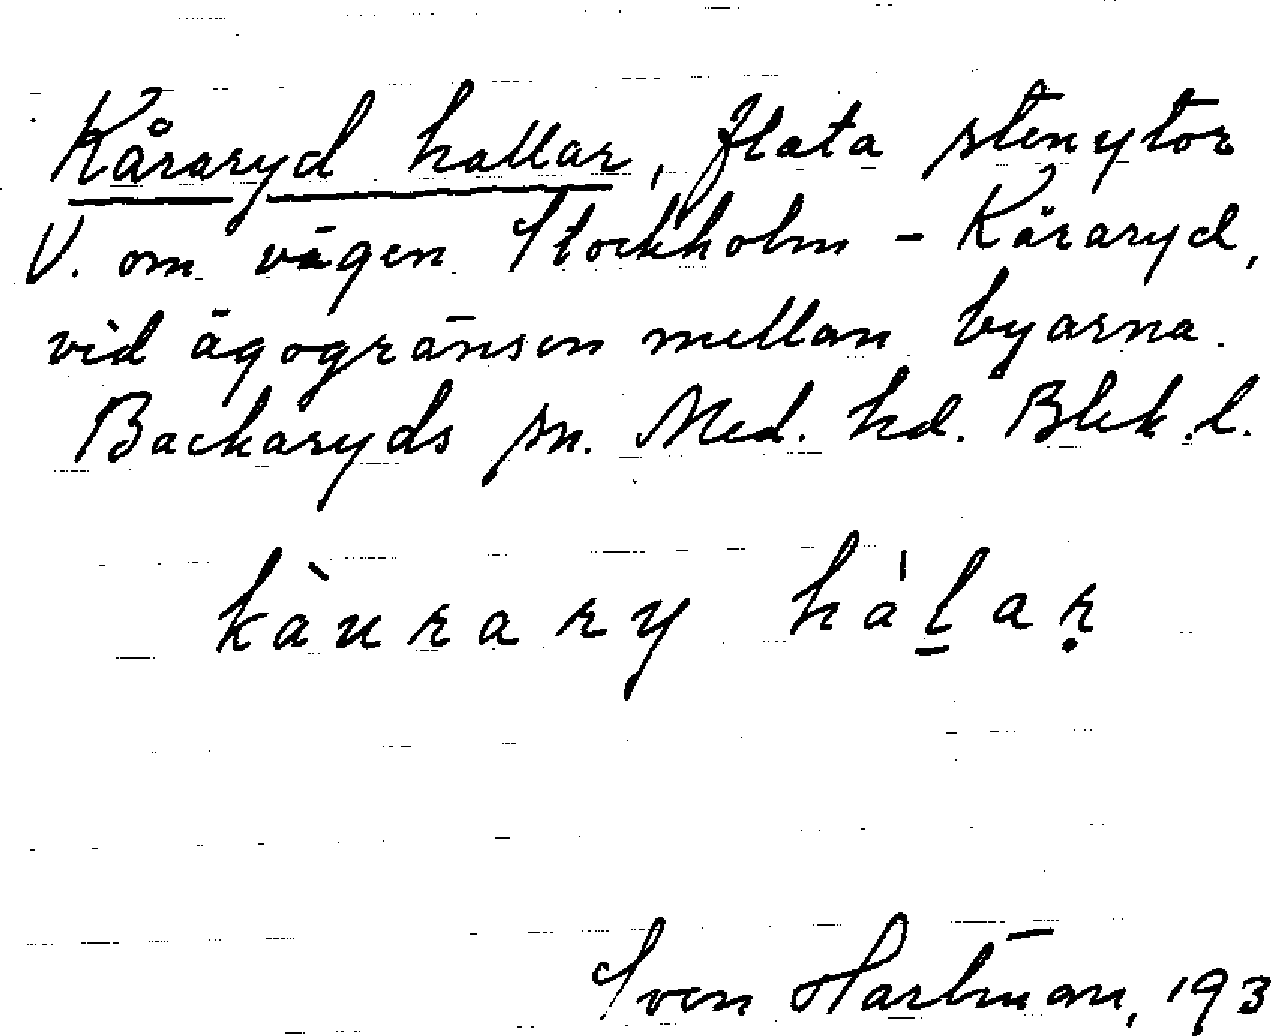 Kåraryd hallar, flata stenytor
V. om vägen Stockholm - Kåraryd,
vid ägogränsen mellan byarna.
Backaryds sn. Med. hd. Blek. l.
kàurary há̍l̲aṛ
Sven Hartman, 193